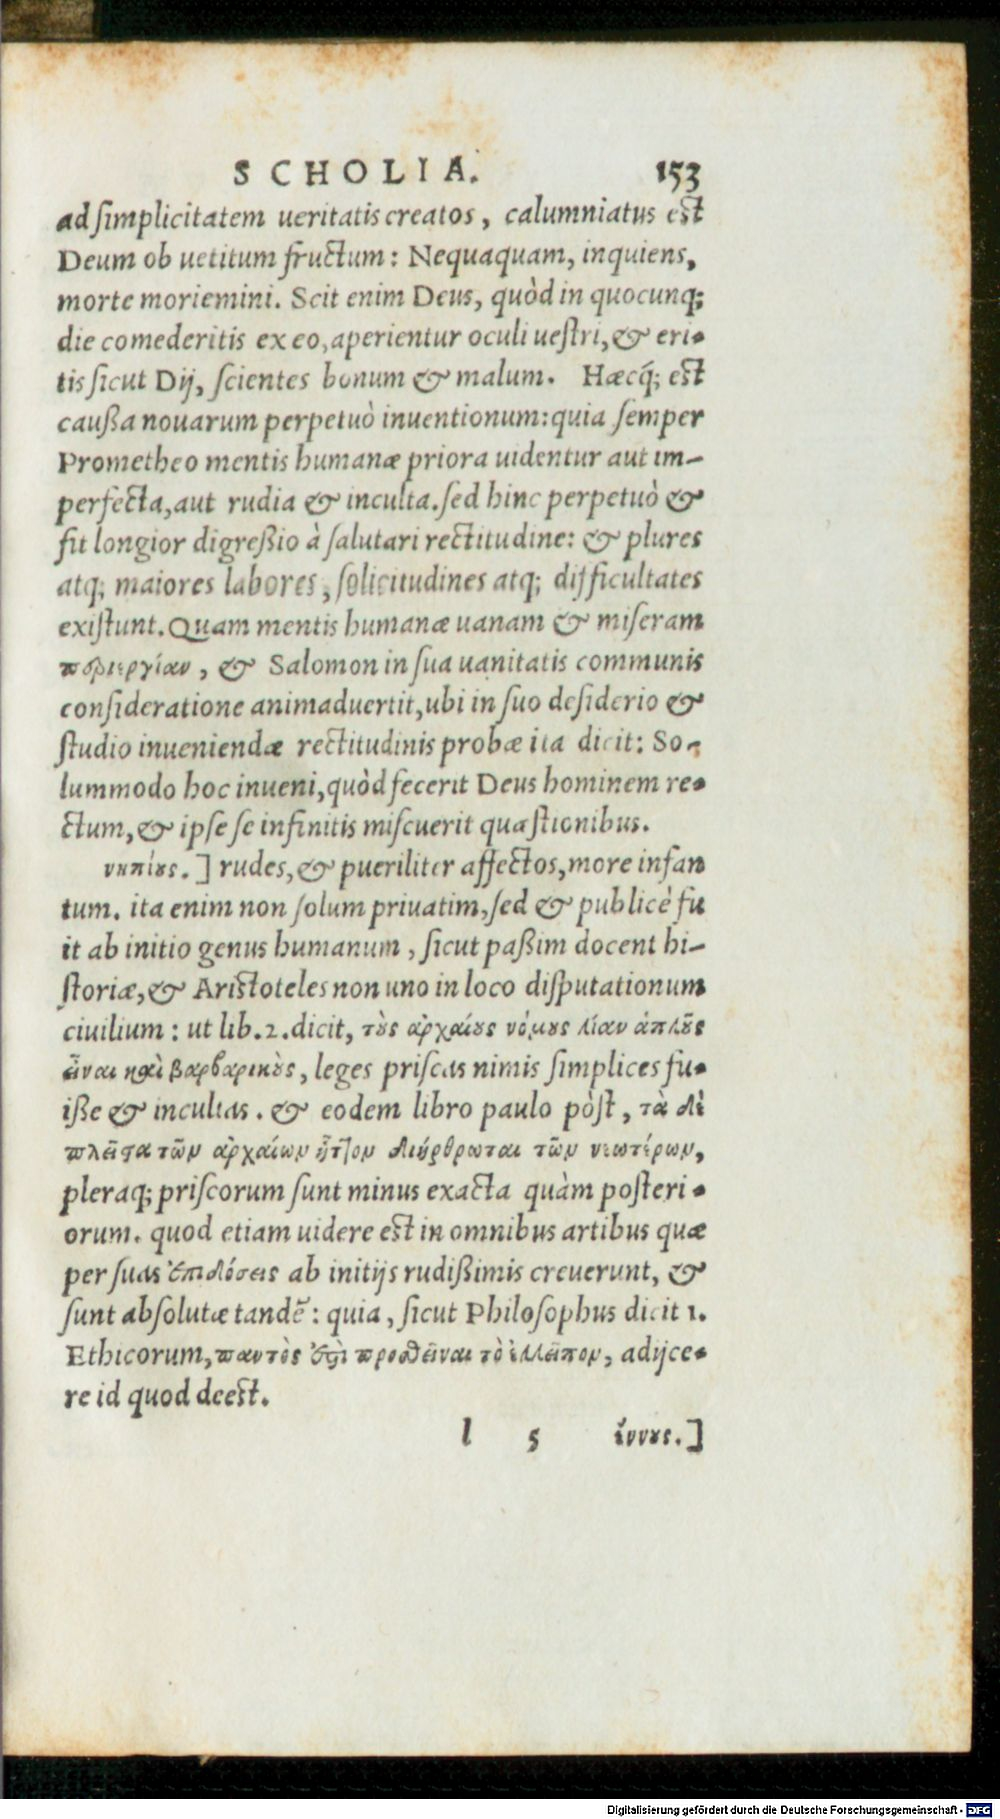 SCHOLIA. 153
ad simplicitatem ueritatis creatos, calumniatus est
Deum ob uetitum fructum: Nequaquam, inquiens,
morte moriemini. Scit enim Deus, quòd in quocunq;
die comederitis ex eo, aperientur oculi uestri, & eri-
tis sicut Dij, scientes bonum & malum. Hæcq́; est
caußa nouarum perpetuò inuentionum: quia semper
Prometheo mentis humanæ priora uidentur aut im-
perfecta, aut rudia & inculta. sed hinc perpetuò &
fit longior digreßio à salutari rectitudine: & plures
atq; maiores labores, solicitudines atq; difficultates
existunt. Quam mentis humanæ uanam & miseram
περιεργίαν, & Salomon in sua uanitatis communis
consideratione animaduertit, ubi in suo desiderio &
studio inueniendæ rectitudinis probæ ita dicit: So-
lummodo hoc inueni, quòd fecerit Deus hominem re-
ctum, & ipse se infinitis miscuerit quæstionibus.
νηπίους.] rudes, & pueriliter affectos, more infan
tum. ita enim non solum priuatim, sed & publicè fu
it ab initio genus humanum, sicut paßim docent hi-
storiæ, & Aristoteles non uno in loco disputationum
ciuilium: ut lib. 2. dicit, τοὺς ἀρχαίους νόμους λίαν ἁπλοῦς
εἶναι καὶ βαρβαρικοὺς, leges priscas nimis simplices fu-
iße & incultas. & eodem libro paulo pòst, τὰ δὲ
πλεῖστα τῶν ἀρχαίων ἧττον διήρθρωται τῶν νεωτέρων,
pleraq; priscorum sunt minus exacta quàm posteri-
orum. quod etiam uidere est in omnibus artibus quæ
per suas ἐπιδόσεις ab initijs rudißimis creuerunt, &
sunt absolutæ tandē: quia, sicut Philosophus dicit 1.
Ethicorum, παντὸς ἐπὶ προσθεῖναι τὸ ἐλλεῖπον, adijce-
re id quod deest.
l 5 ἔννους.]
Digitalisierung gefördert durch die Deutsche Forschungsgemeinschaft - DFG